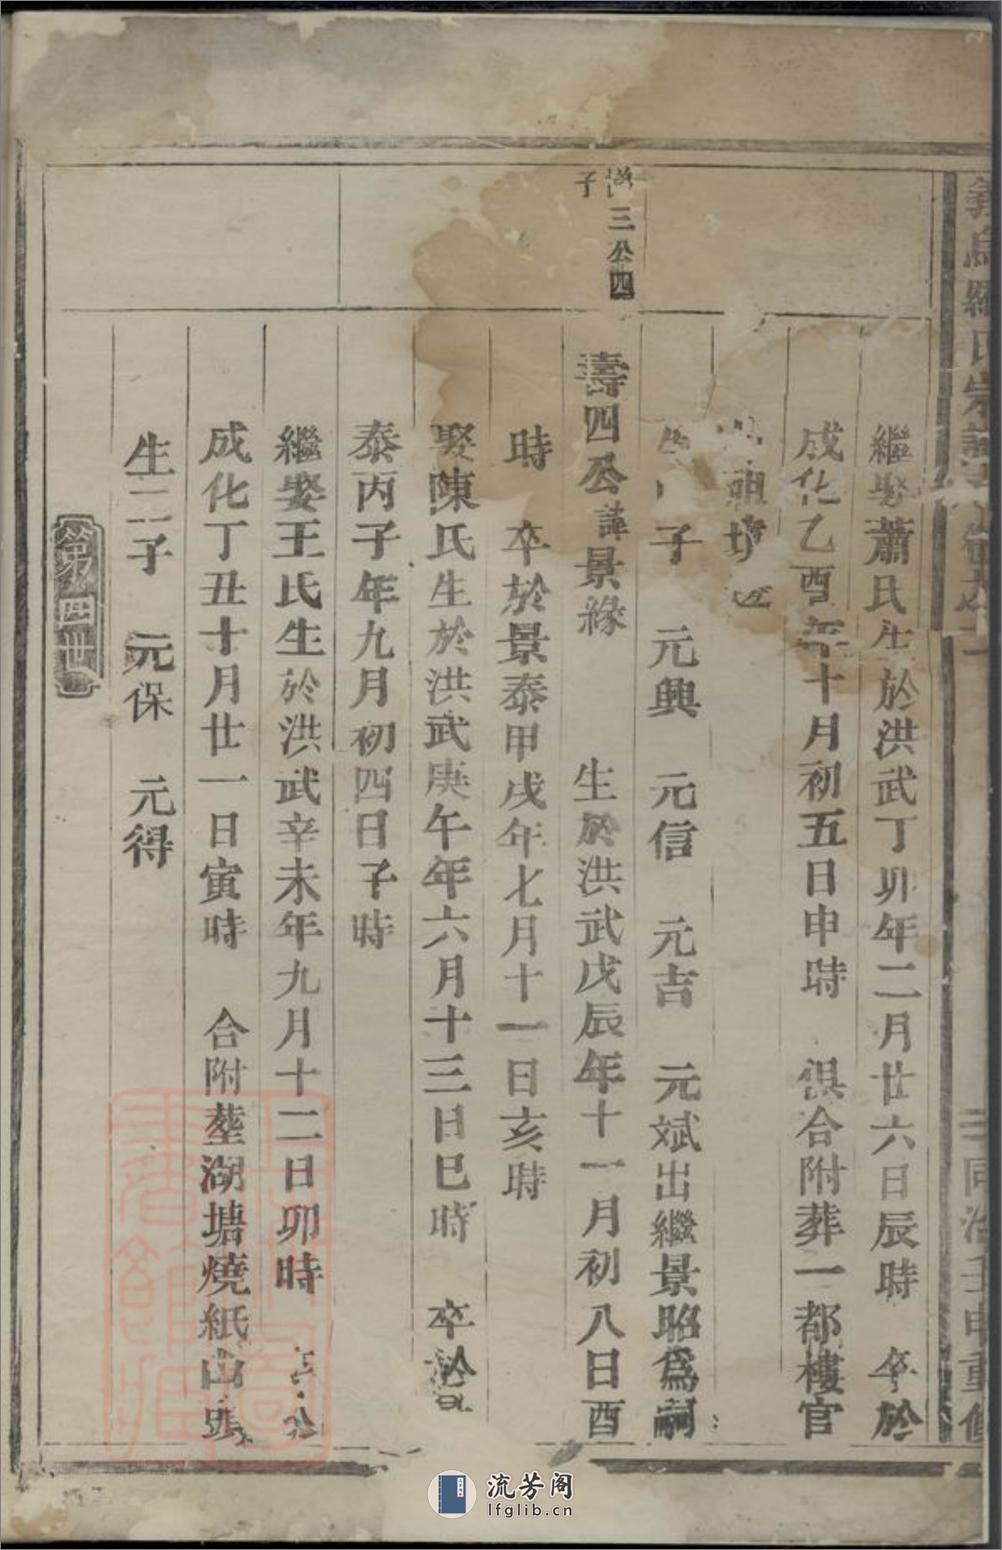 烏羅氏宗譜
同治壬申重修
繼娶蕭氏生於洪武丁卯年二月廿六日辰時 卒於
成化乙酉年十月初五日申時 俱合附葬一都樓官
塘
子 元興 元信 元吉 元斌出繼景昭爲嗣
三公四
子
壽四公諱景緣 生於洪武戊辰年十一月初八日酉
時 卒於景泰甲戌年七月十一日亥時
娶陳氏生於洪武庚午年六月十三日巳時 卒於景
泰丙子年九月初四日子時
繼娶王氏生於洪武辛未年九月十二日卯時 卒於
成化丁丑十月廿一日寅時 合附塟湖塘燒紙山頭
生二子 元保 元得
第四世
流芳阁
lfglib.cn